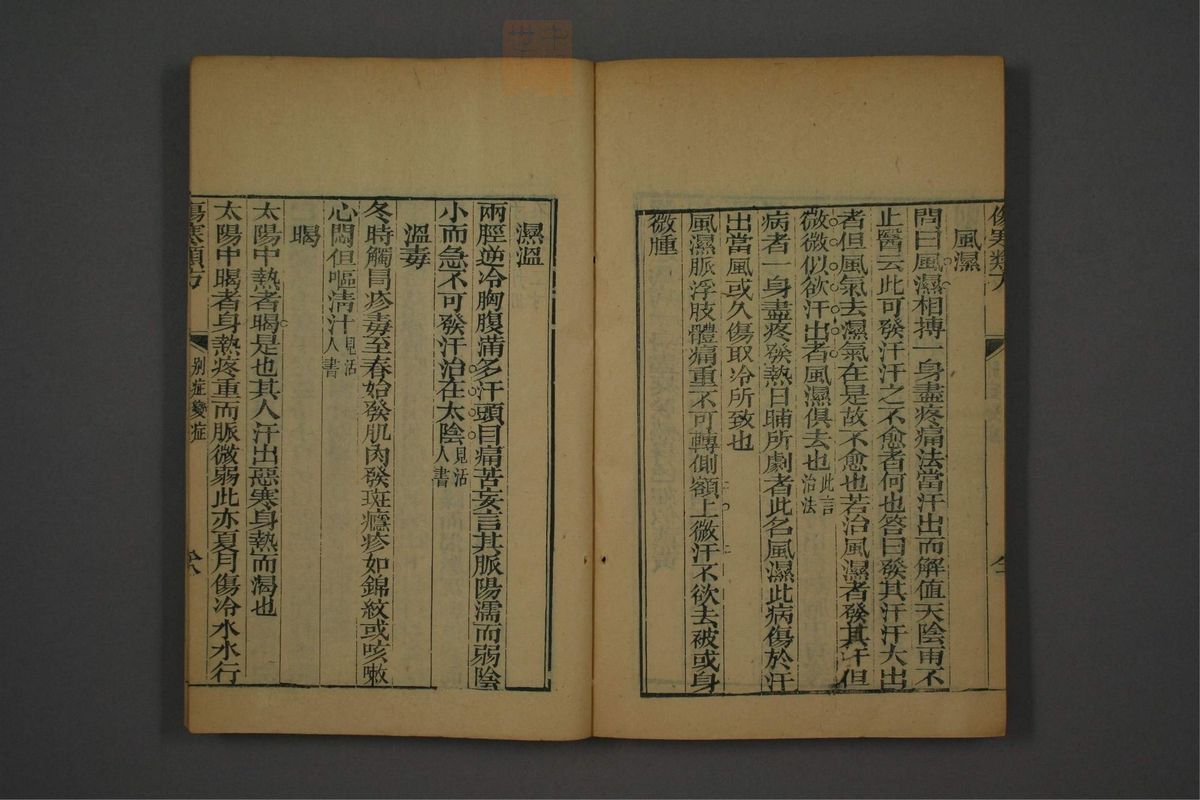 傷寒類方
風濕
問曰風濕相搏一身盡疼痛法當汗出而解值天陰雨不
止醫云此可發汗汗之不愈者何也答曰發其汗汗大出
者但風氣去濕氣在是故不愈也若治風濕者發其汗但
微微似欲汗出者風濕俱去也此言治法
病者一身盡疼發熱日晡所劇者此名風濕此病傷於汗
出當風或久傷取冷所致也
風濕脈浮肢體痛重不可轉側額上微汗不欲去被或身
微腫
濕溫
兩脛逆冷胸腹滿多汗頭目痛苦妄言其脈陽濡而弱陰
小而急不可發汗治在太陰見活人書
溫毒
冬時觸冐疹毒至春始發肌肉發斑癮疹如錦紋或咳嗽
心悶但嘔清汁見活人書
暍
太陽中熱者暍是也其人汗出惡寒身熱而渴也
太陽中暍者身熱疼重而脈微弱此亦夏月傷冷水水行
傷寒類方
別症變症
六